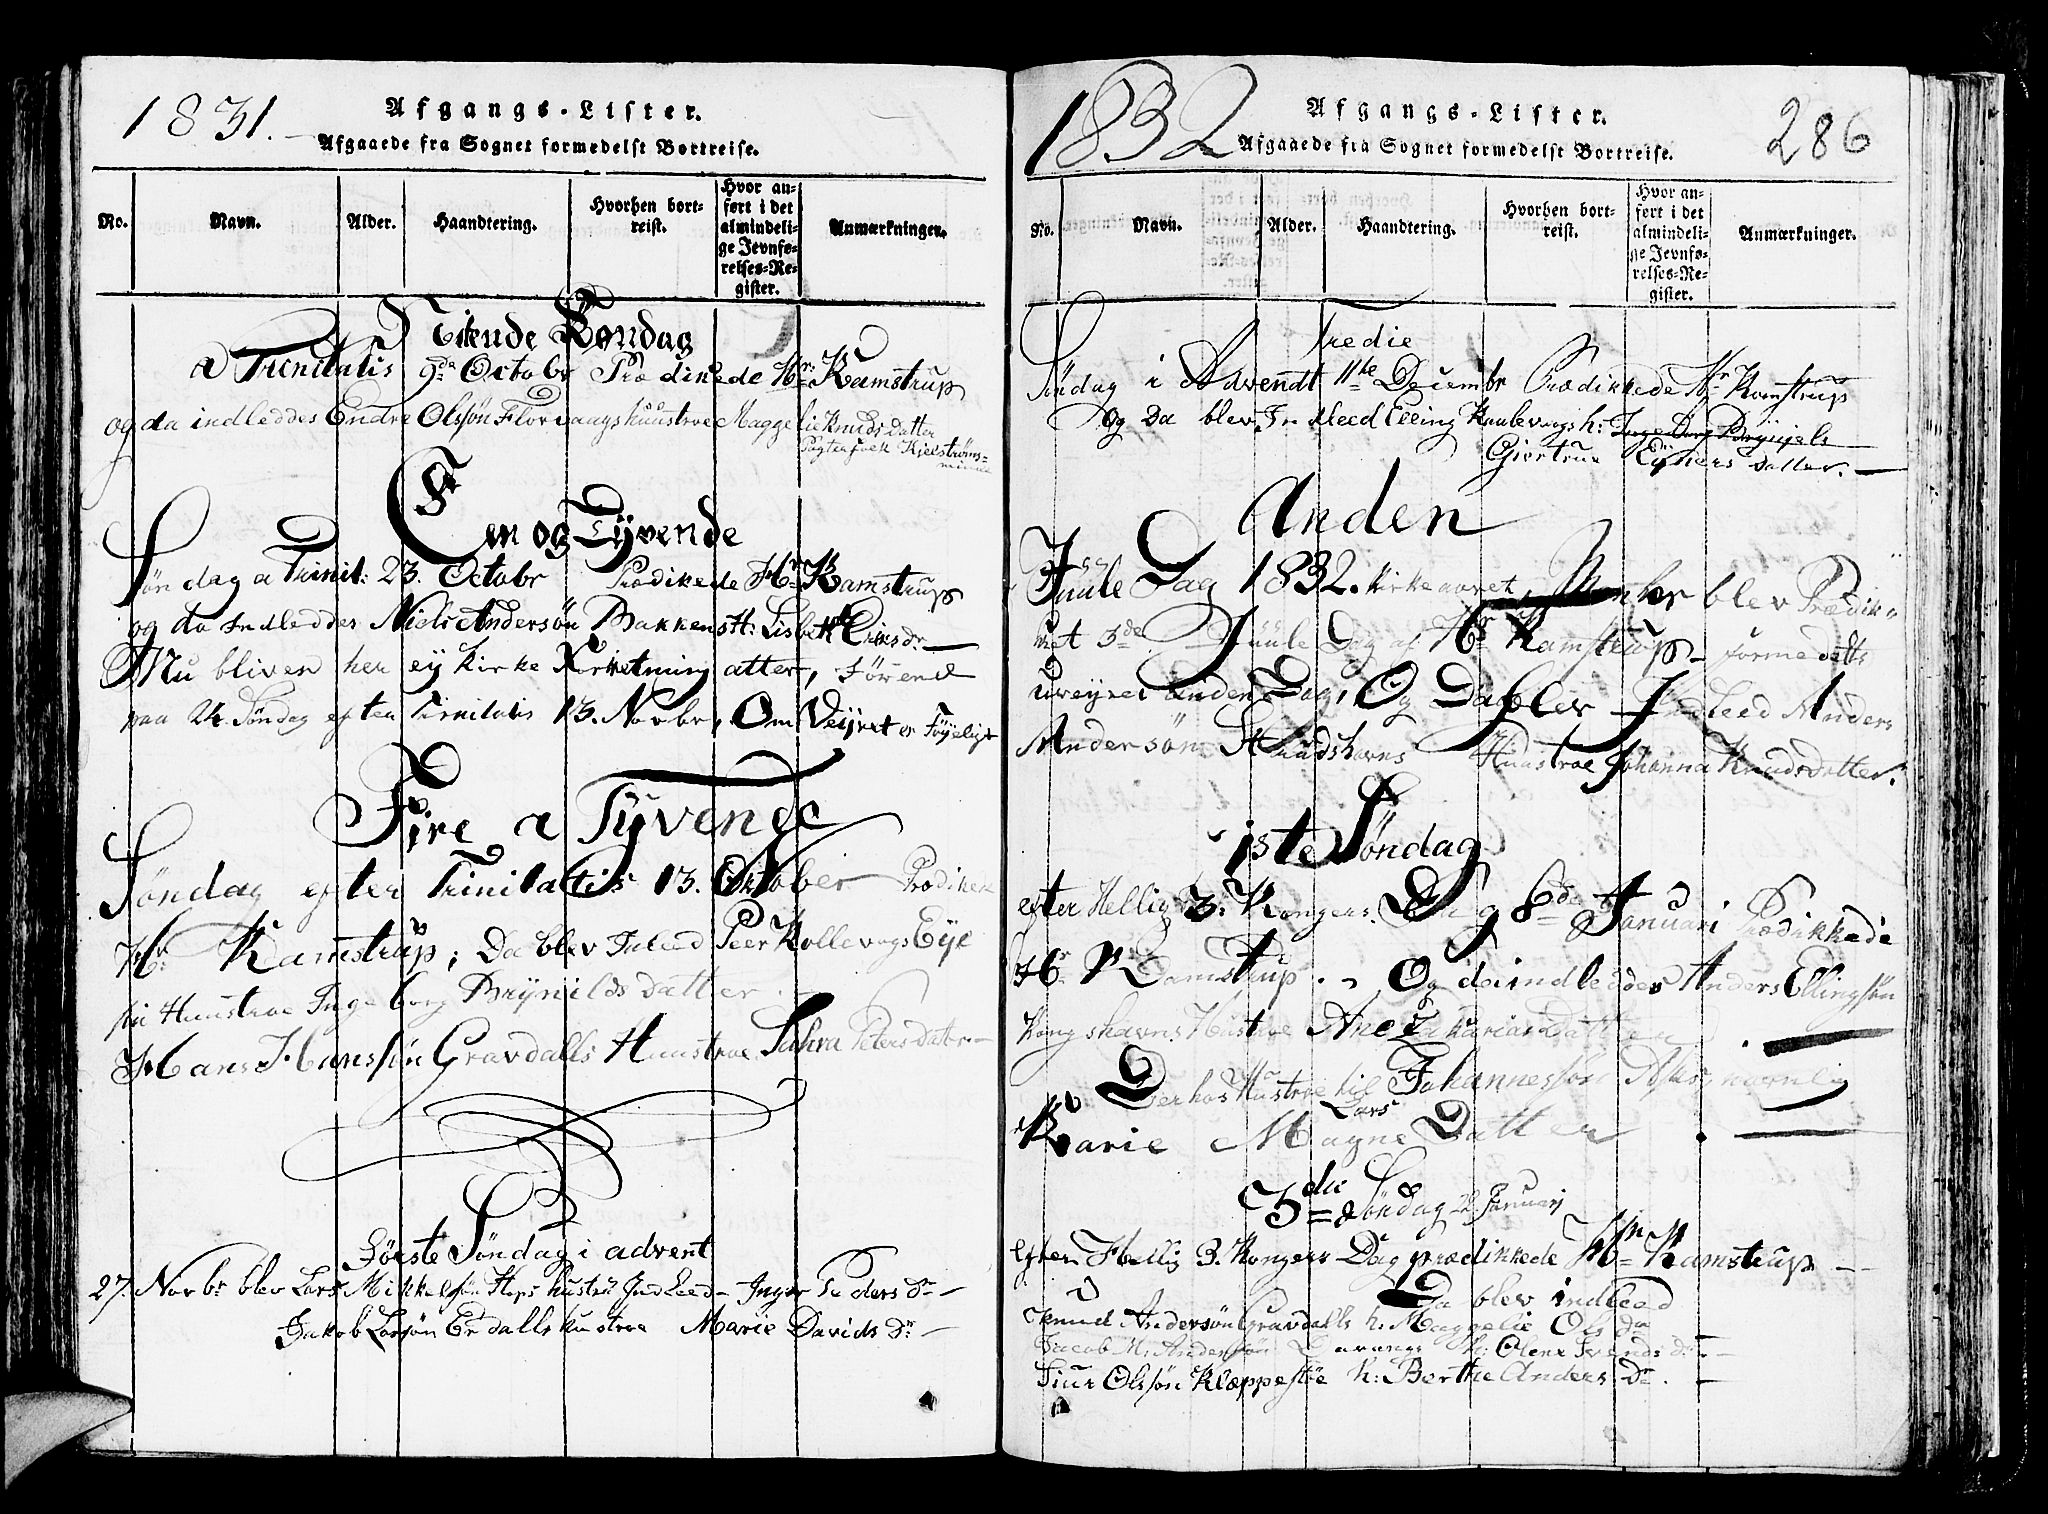 1831.
Afgangs-Lister.
Afgaaede fra Sognet formedelst Bortreise.
No. Navn. Alder. Haandtering. Hvorhen bortreist. Hvor anført i det almindelige Jevnførelses-Register. Anmærkninger.
Nitende Søndag
a Trinitatis 9de Octobr Prædikede Hr. Kamstrup
og da indleddes Endre Olssøn Florvaags huustroe Maggelie Knuds Datter
En og Tyvende
Søndag a Trinit: 23. Octobr Prædikede Hr. Kamstrup
og da Indleddes Niels Andersøn Bakkens H: Lisbeth Eriks dr. —
Nu bliver her ey kirke atter, Førend
paa 24. Søndag efter Trinitatis 13. Novbr, Om Veyret er Føyeligt
Fire a Tyvende
Søndag efter Trinitatis 13. October Prædiken
Hr. Kamstrup; Da blev Inleed Peer Kollevogs Eye
sin Huustroe Ingeborg Brynilds Datter.
Hans Hanssøn Gravdalls Huustroe Sahra Peters datter —
Første Søndag i advent
27. Novbr blev Lars Mikkelssøn Hops hustru Indleed — Inger Peders Dr —
Jakob Larsøn Erdalls hustroe Marie Davids Dr —
1832
Afgangs-Lister.
286
Afgaaede fra Sognet formedelst Bortreise.
No. Navn. Alder. Haandtering. Hvorhen bortreist. Hvor anført i det almindelige Jevnførelses-Register. Anmærkninger.
Tredie
Søndag i Advendt 11te Decembr Prædikkede Hr Kamstrup
Og Da blev Indleed Elling h: Ingeborg Brynjels
Giertrue Datter. —
Anden
Juule Dag 1832. kirkeaaret, blev Prædik
ket 3de Juule Dag af Hr Kamstrup — formedelts
uveyret anden Dag, Og Da blev Indleed Anders
Andersøn Huustroe Johanna Knudsdatter.
1ste Søndag
efter Hellig 3: Kongers Dag 8de Januari Prædikkede
Hr Kamstrup. Og da indleddes Anders Ellingsøn
Kongshavns Hustroe Ane Zakarias Datter
Derhos Hustroe til Johannessøn Ask, navnlig
Lars
Karie Magne Datter
3die Søndag 22 Januarj
efter Hellig 3. Kongers Dag prædikkede Hr Kamstrup —
Da blev indleed
Knud Andersøn Gravdalls h: Maggelie Ols Dr —
Jacob M: Andersøn h: Olena Iversd. —
Siur Olssøn Kleppestøe h: Berthe Anders Dr. —